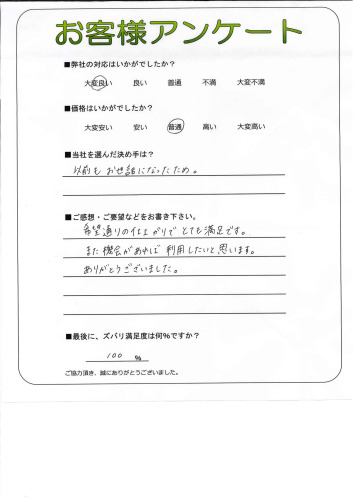 お客様アンケート
■弊社の対応はいかがでしたか?
大変良い 良い 普通 不満 大変不満
■価格はいかがでしたか?
大変安い 安い 普通 高い 大変高い
■当社を選んだ決め手は?
以前もお世話になったため。
■ご感想・ご要望などをお書き下さい。
希望通りの仕上がりでとても満足です。
また機会があれば利用したいと思います。
ありがとうございました。
■最後に、ズバリ満足度は何%ですか?
100 %
ご協力頂き、誠にありがとうございました。